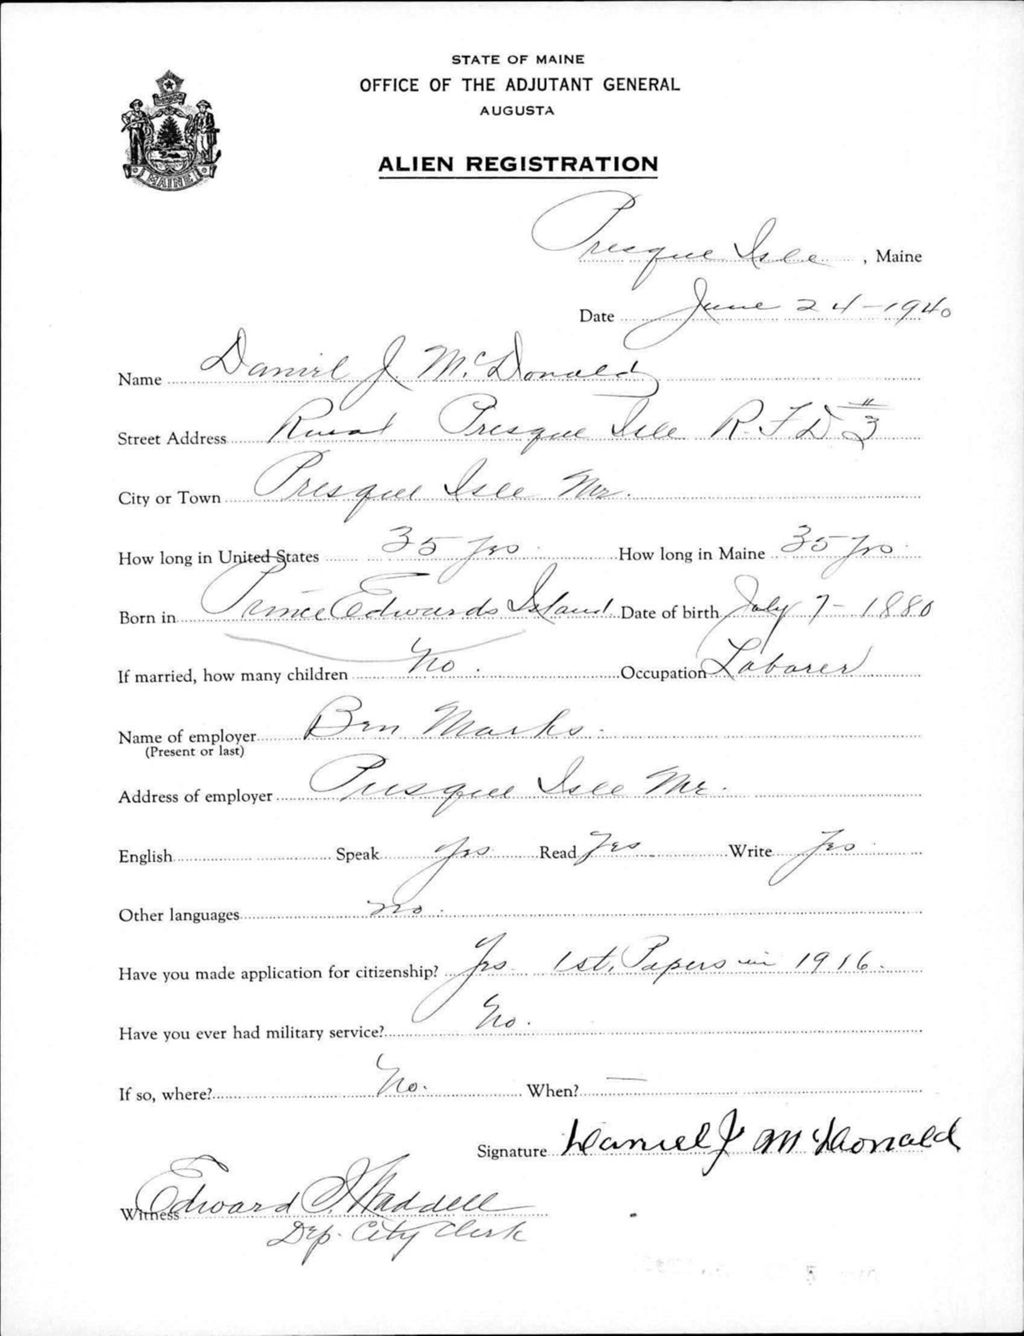 STATE OF MAINE
OFFICE OF THE ADJUTANT GENERAL
AUGUSTA
ALIEN REGISTRATION
MAINE
Presque Isle, Maine
Date June 24-1940
Name Daniel J. McDonald
Street Address Rural Presque Isle R.F.D #3
City or Town Presque Isle Me.
How long in United States 35 yrs. How long in Maine 35 yrs.
Born in Prince Edwards Island Date of birth July 7-1880
If married, how many children No. Occupation Laborer
Name of employer Ben Marks.
(Present or last)
Address of employer Presque Isle Me.
English Speak Yes Read Yes Write Yes
Other languages no.
Have you made application for citizenship? Yes 1st. Papers in 1916.
Have you ever had military service? No.
If so, where? No. When? —
Signature Daniel J McDonald
Witness Edward Waddell
Dep. City Clerk